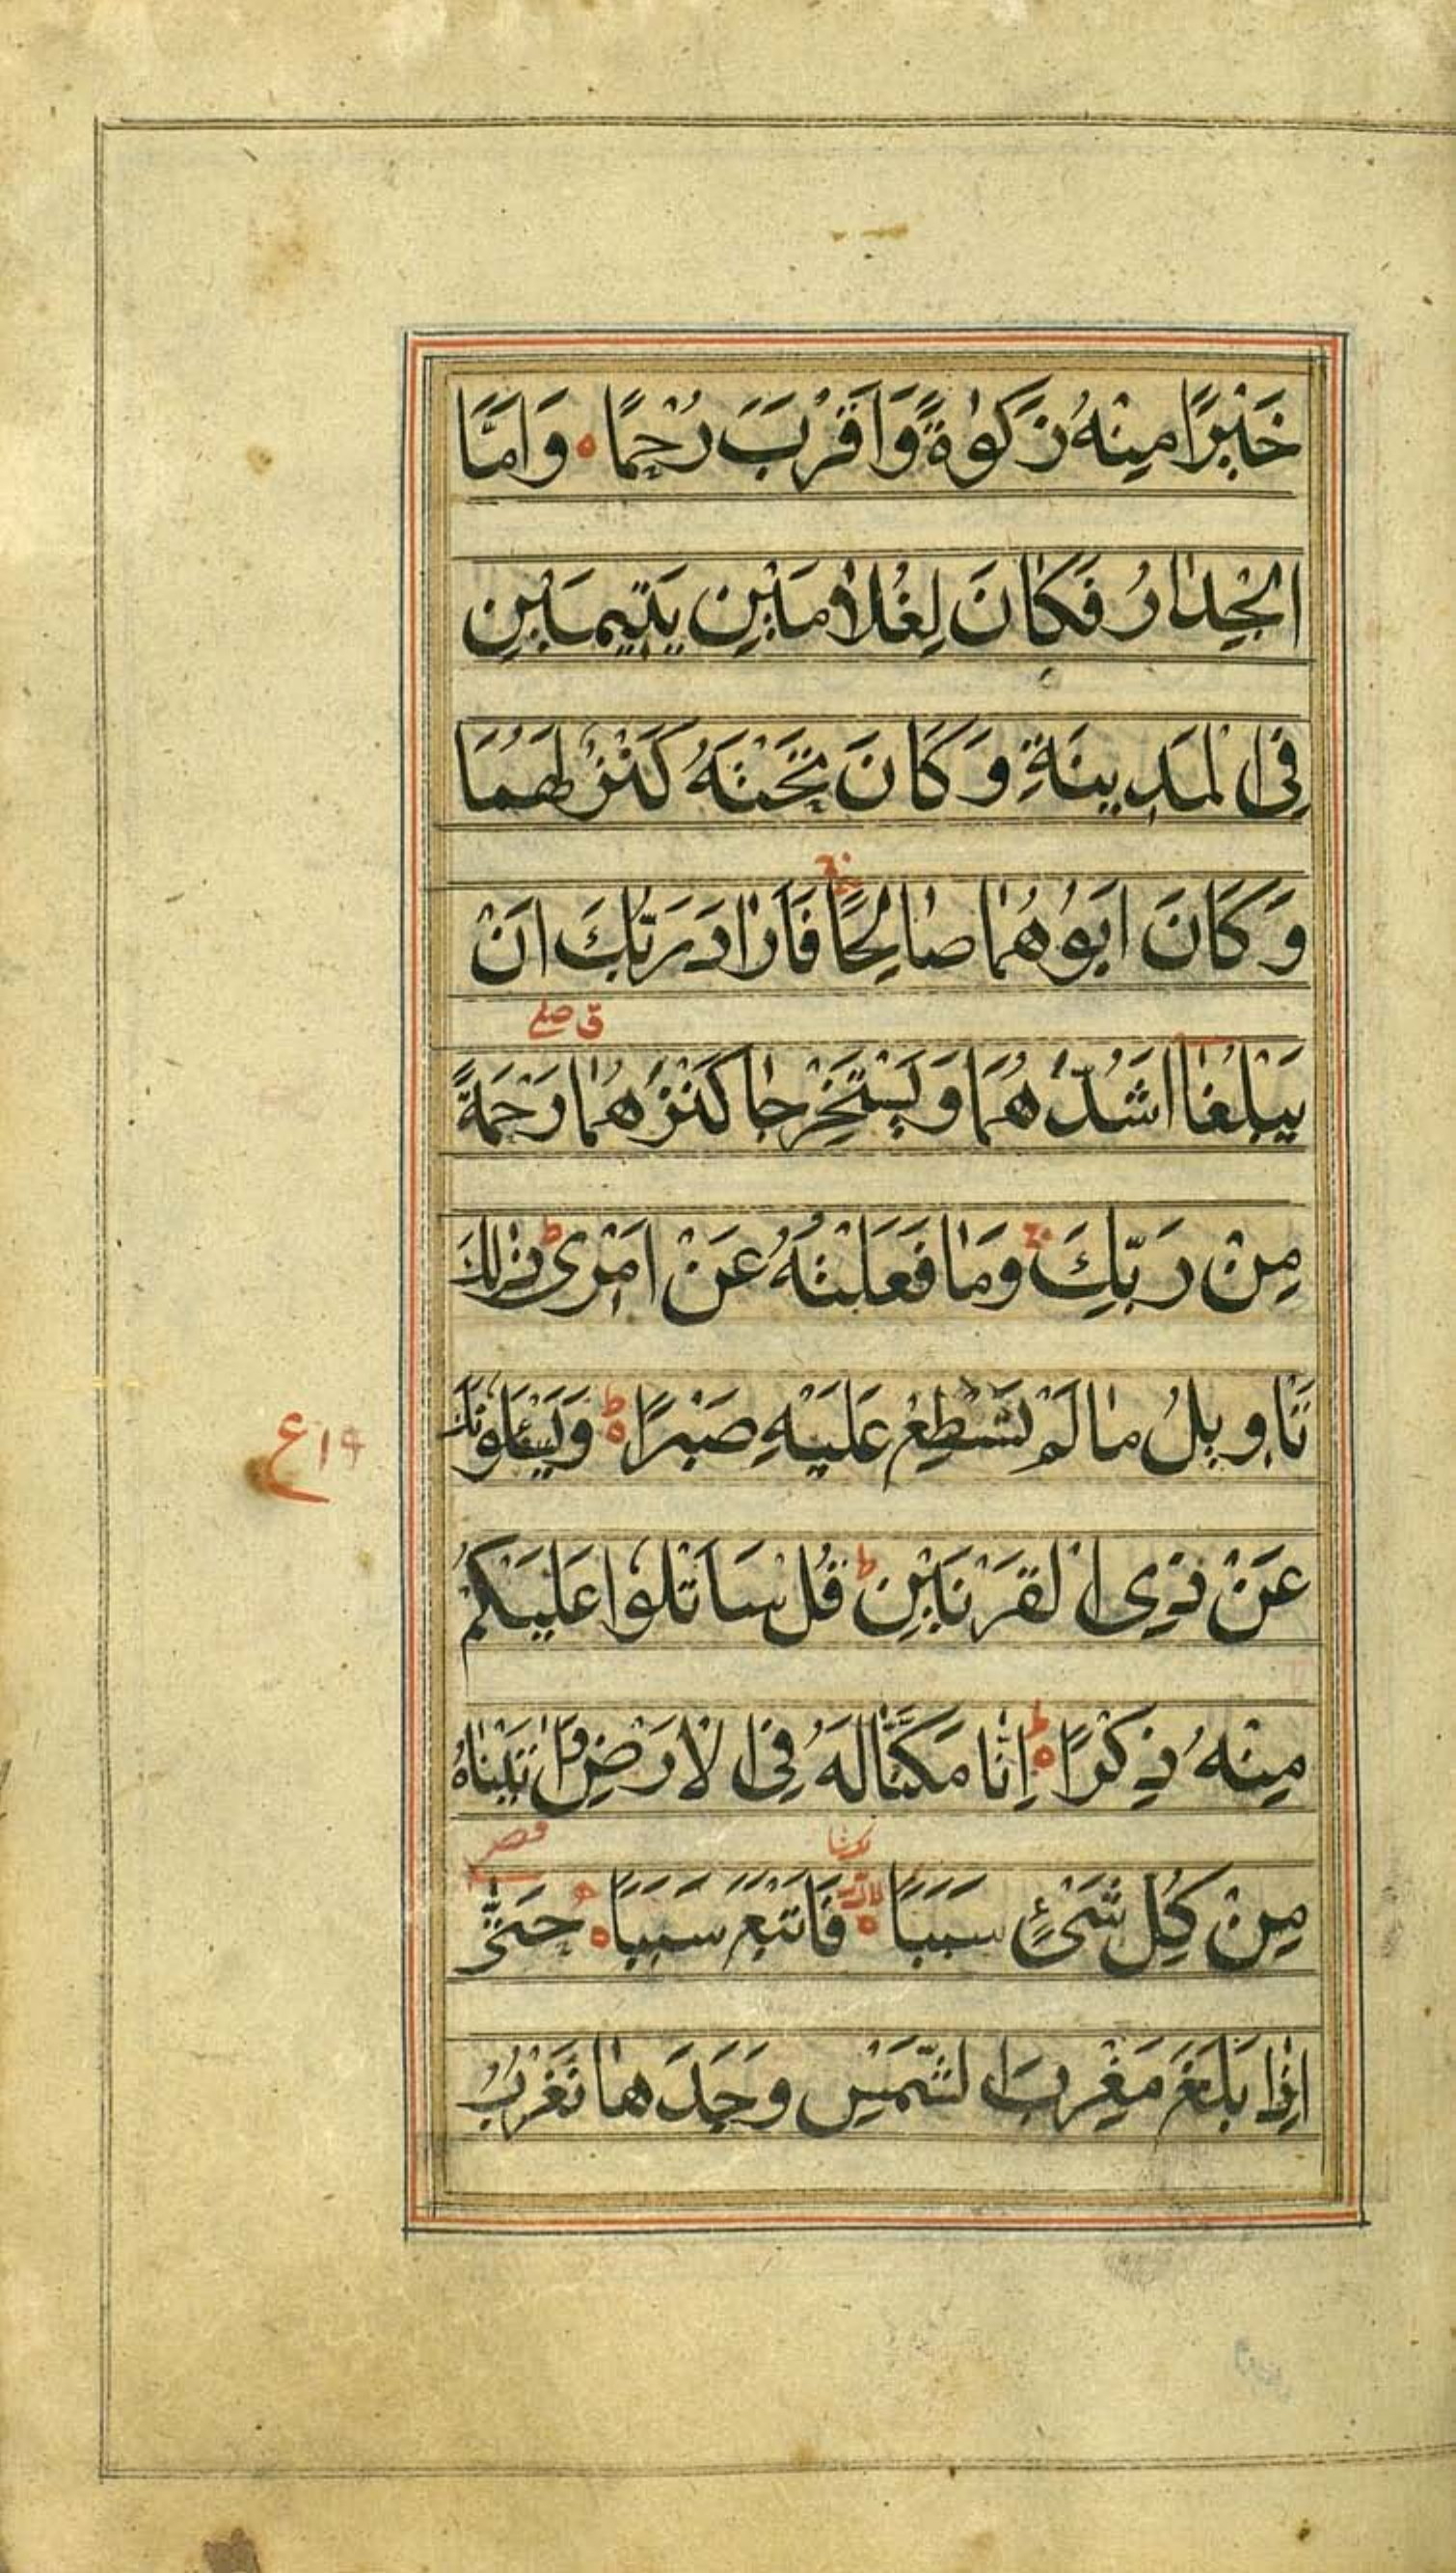 خَيْرًا مِنْهُ زَكٰوةً وَاَقْرَبَ رُحْمًا ه وَاَمَّا
الْجِدَارُ فَكَانَ لِغُلَامَيْنِ يَتِيمَيْنِ
فِى الْمَدِينَةِ وَكَانَ تَحْتَهُ كَنْزٌ لَهُمَا
وَكَانَ اَبُوهُمَا صَالِحًا ج فَاَرَادَ رَبُّكَ اَنْ
ق صلى
يَبْلُغَا اَشُدَّهُمَا وَيَسْتَخْرِجَا كَنْزَهُمَا رَحْمَةً
مِنْ رَبِّكَ ج وَمَا فَعَلْتُهُ عَنْ اَمْرِى ط ذٰلِكَ
تَاْوِيلُ مَا لَمْ تَسْطِعْ عَلَيْهِ صَبْرًا ه ط وَيَسْئَلُونَكَ
عَنْ ذِى الْقَرْنَيْنِ ط قُلْ سَاَتْلُوا عَلَيْكُمْ
مِنْهُ ذِكْرًا ه ط اِنَّا مَكَّنَّا لَهُ فِى الْاَرْضِ وَاٰتَيْنَاهُ
مِنْ كُلِّ شَىْءٍ سَبَبًا ه فَاَتْبَعَ سَبَبًا ه حَتّٰى
اِذَا بَلَغَ مَغْرِبَ الشَّمْسِ وَجَدَهَا تَغْرُبُ